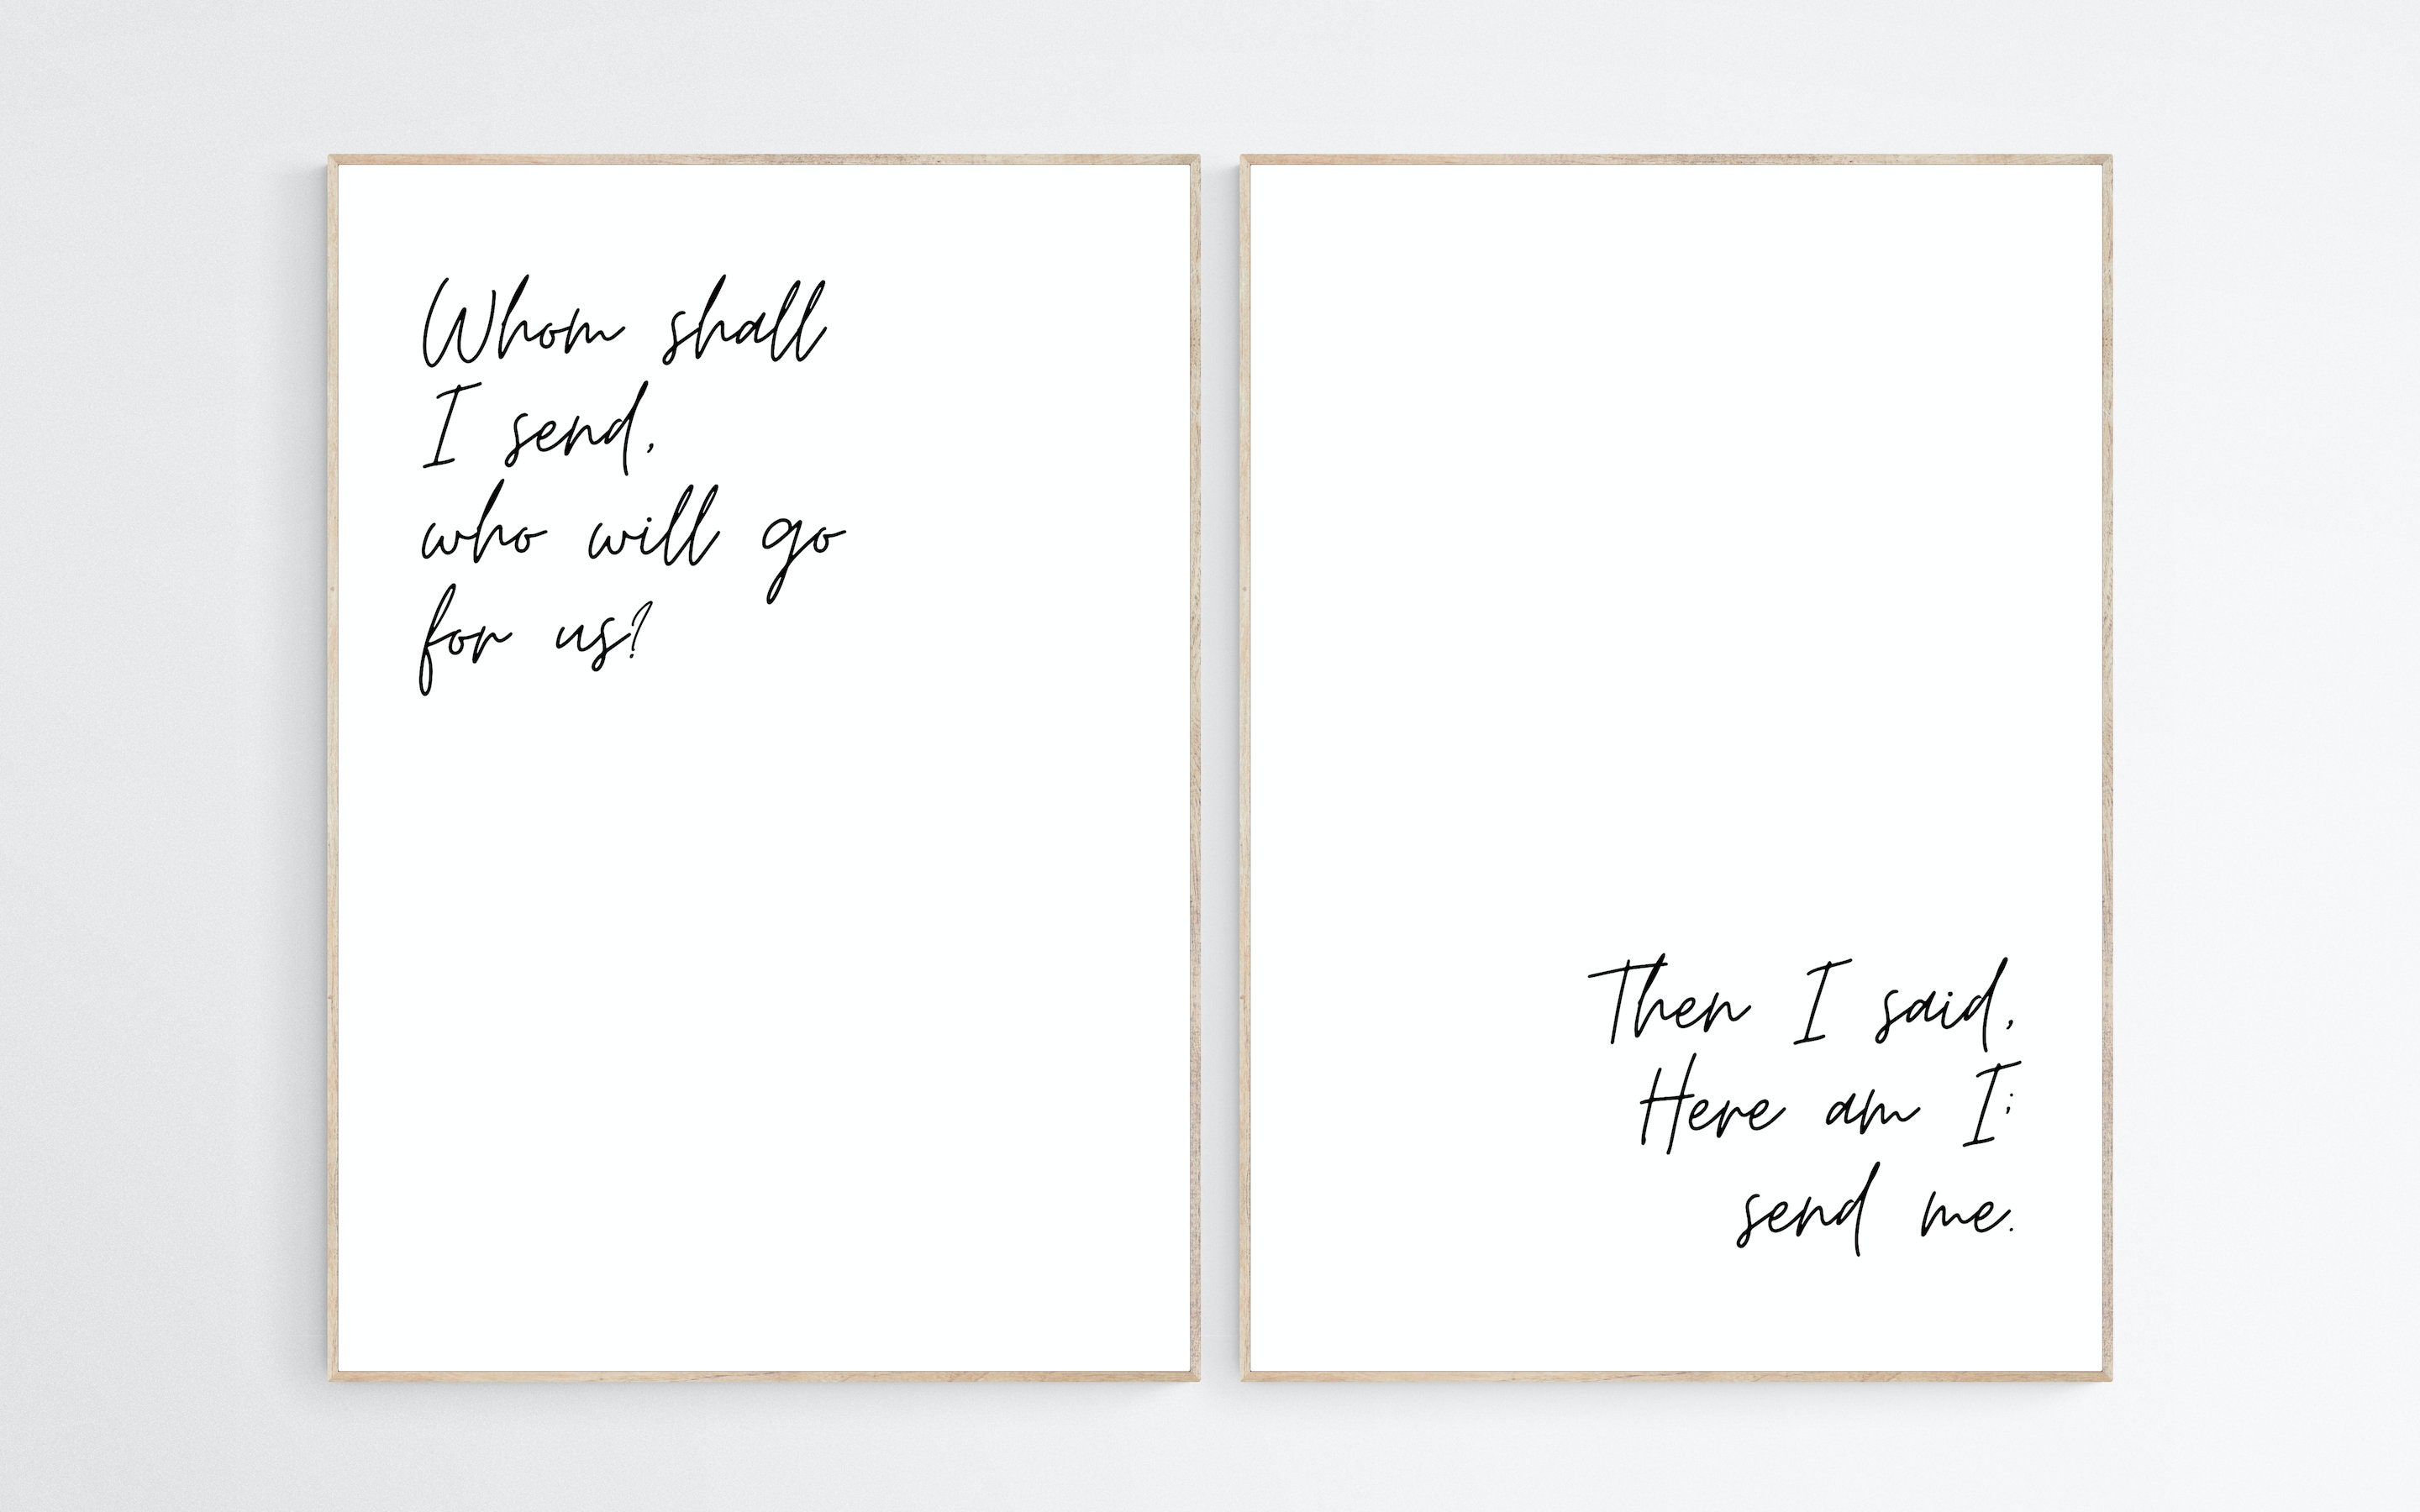 Whom shall
I send,
who will go
for us?
Then I said,
Here am I;
send me.